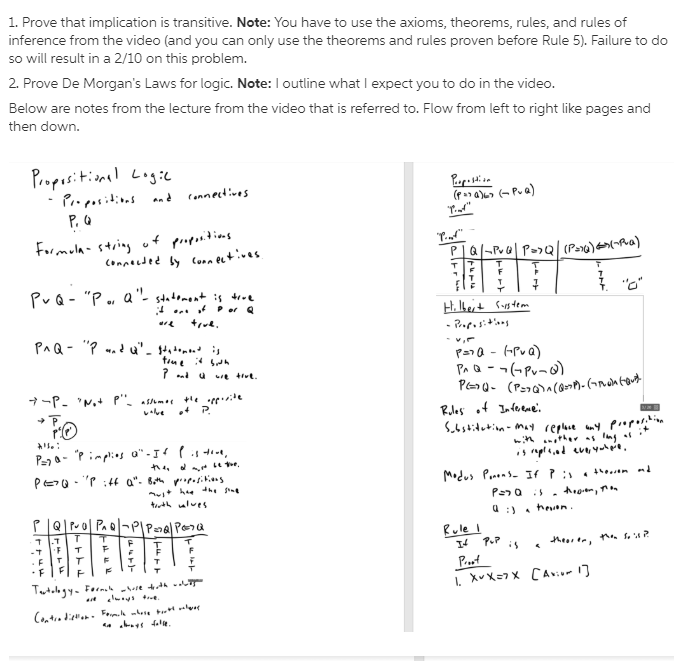 1. Prove that implication is transitive. Note: You have to use the axioms, theorems, rules, and rules of
inference from the video (and you can only use the theorems and rules proven before Rule 5). Failure to do
so will result in a 2/10 on this problem.
2. Prove De Morgan's Laws for logic. Note: I outline what I expect you to do in the video.
Below are notes from the lecture from the video that is referred to. Flow from left to right like pages and
then down.
Propositional Logic
- Propositions and connectives
P, Q
Formula - string of propositions
connected by connectives
P∨Q - "P or Q" - statement is true
if one of P or Q
are true.
P∧Q - "P and Q" - Statement is
true if both
P and Q are true.
→ ¬P - "Not P" - assumes the opposite
value of P.
Also:
P=>Q - "P implies Q" - If P is true,
then Q must be true.
P<=>Q - "P iff Q" - Both propositions
must have the same
truth values
P | Q | P∨Q | P∧Q | ¬P | P=>Q | P<=>Q
T T T T F T T
T F T F F F F
F T T F T T F
F F F F T T T
Tautology - Formula whose truth values
are always true.
Contradiction - Formula whose truth values
are always false.
Proposition
(P=>Q)<=>(¬P∨Q)
"Proof"
"Proof"
P | Q | ¬P∨Q | P=>Q | (P=>Q)<=>(¬P∨Q)
T T T T T
T F F F T
F T T T T
F F T T T "□"
Hilbert System
- Propositions
- ∨, ¬
P=>Q - (¬P∨Q)
P∧Q - ¬(¬P∨¬Q)
P<=>Q - (P=>Q)∧(Q=>P) - (¬P∨Q)∧(¬Q∨P)
Rules of Inference:
Substitution - May replace any proposition
with another as long as it
is replaced everywhere.
Modus Ponens - If P is a theorem and
P=>Q is a theorem, then
Q is a theorem.
Rule 1
If P∨P is a theorem, then so is P.
Proof
1. X∨X=>X [Axiom 1]